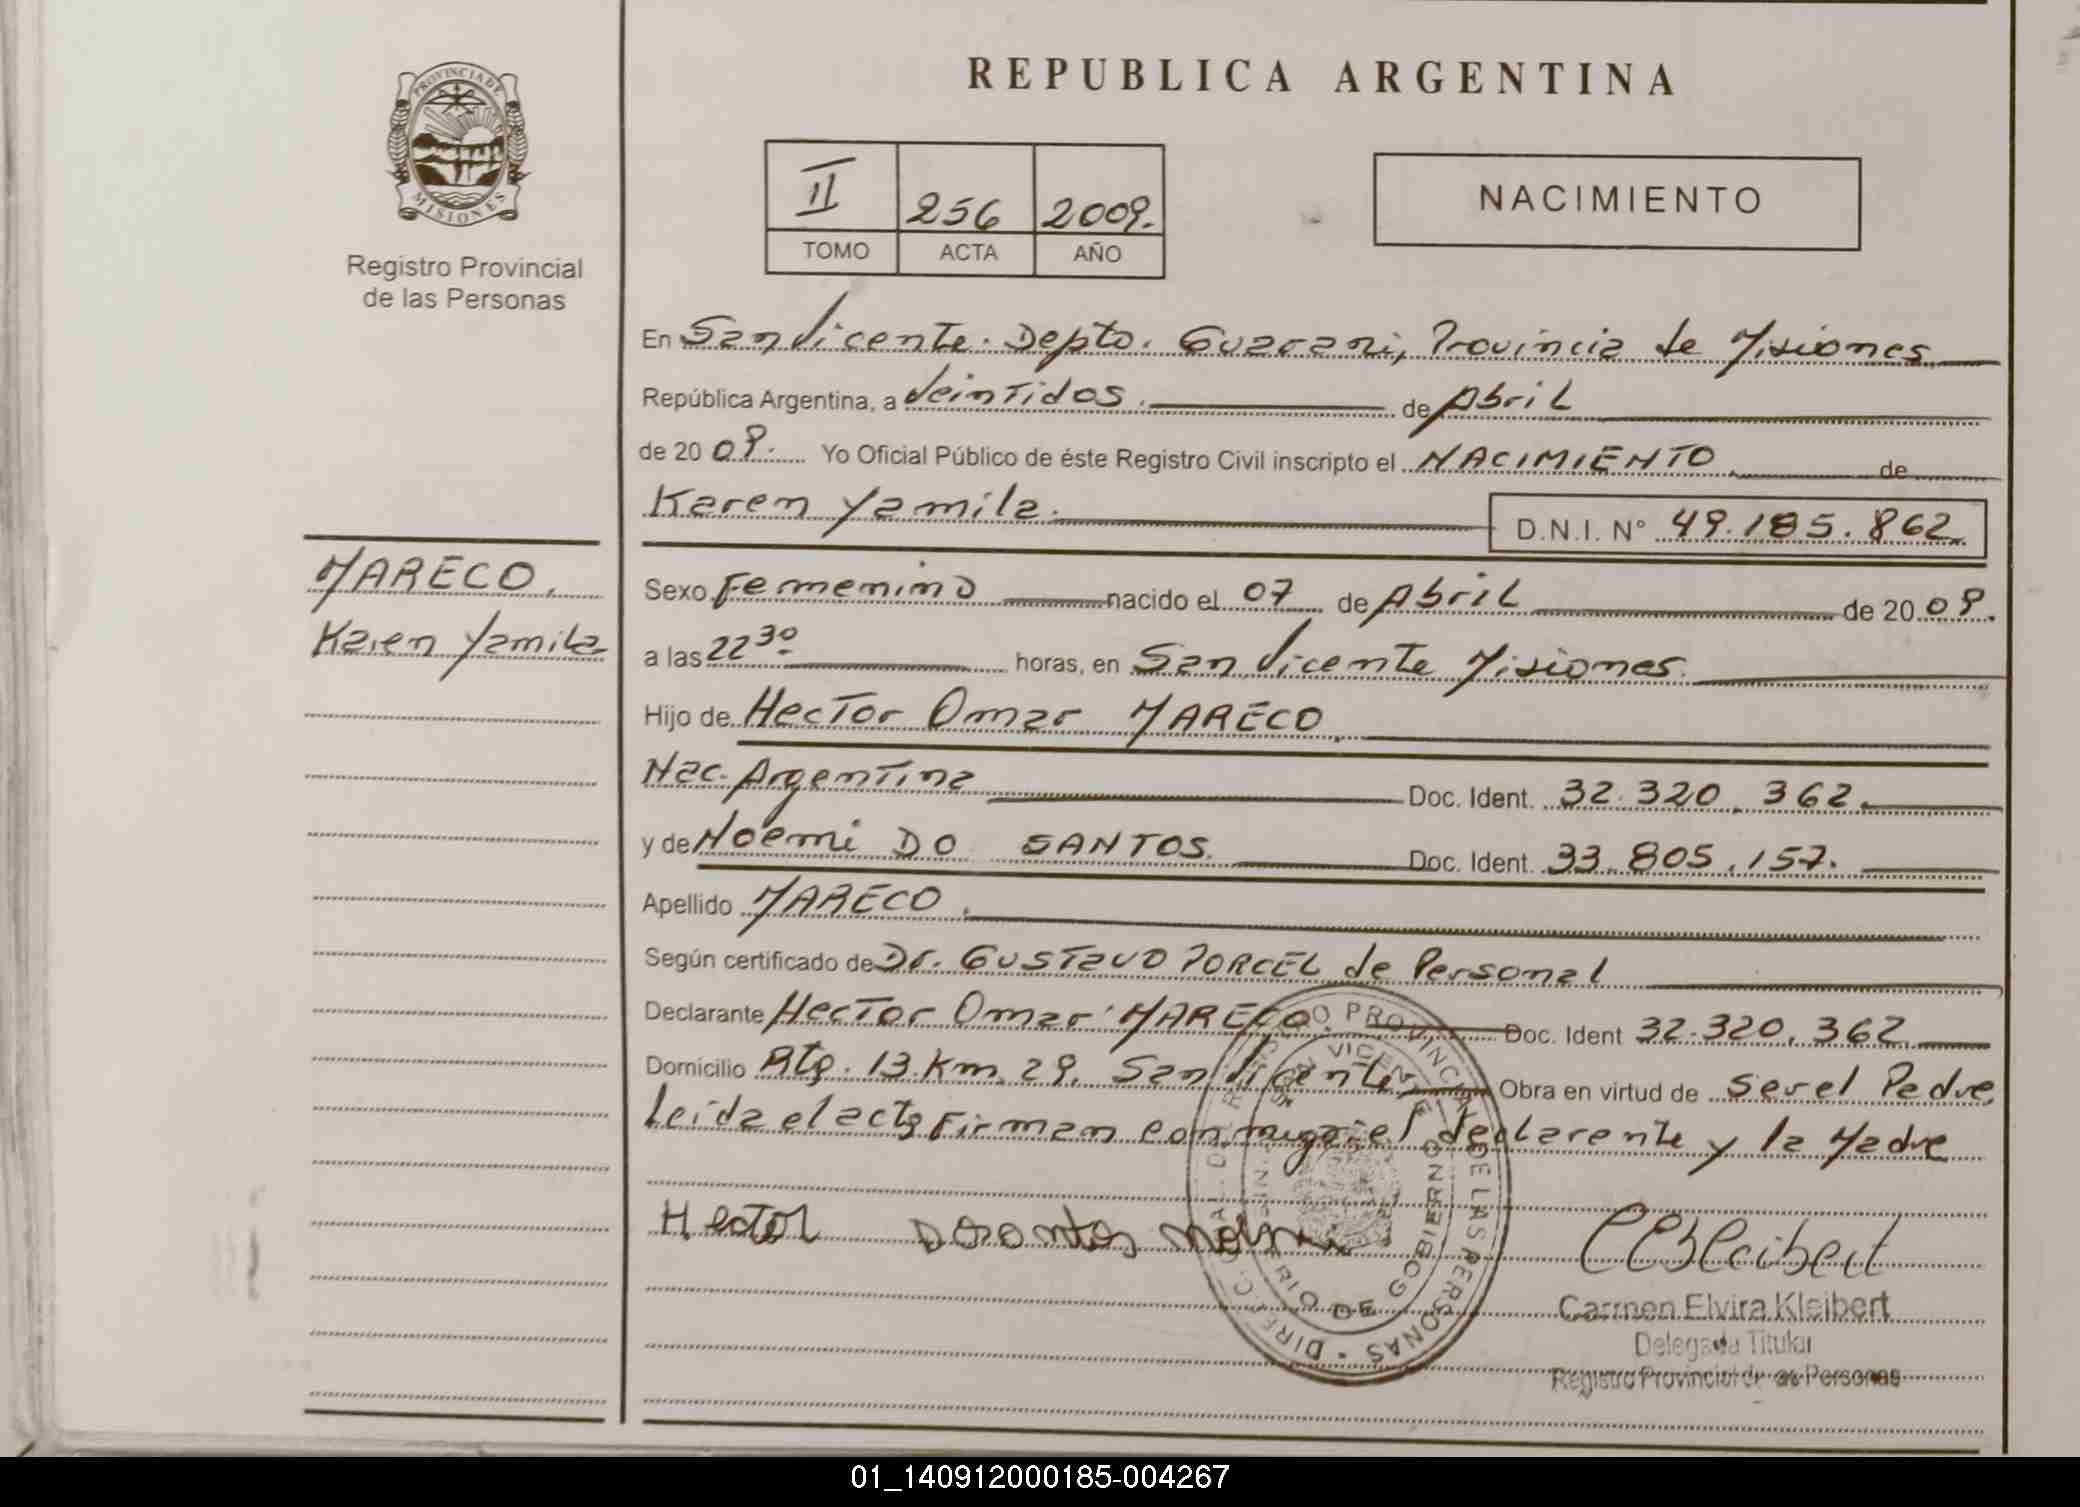 PROVINCIA DE
MISIONES
Registro Provincial
de las Personas
REPUBLICA ARGENTINA
II 256 2009.
TOMO ACTA AÑO
NACIMIENTO
En San Vicente. Depto. Guarani, Provincia de Misiones
República Argentina, a Veintidos. de Abril
de 2009. Yo Oficial Público de éste Registro Civil inscripto el NACIMIENTO. de
Karen Yamila. D.N.I. N° 49.185.862.
MARECO.
Karen Yamila
Sexo Femenino nacido el 07 de Abril de 2009.
a las 22 30. horas, en San Vicente Misiones.
Hijo de Hector Omar MARECO.
Nac. Argentina Doc. Ident. 32.320.362.
y de Noemi DO SANTOS. Doc. Ident. 33.805.157.
Apellido MARECO.
Según certificado de Dr. GUSTAVO PORCEL de Personal
Declarante Hector Omar MARECO. Doc. Ident 32.320.362.
Domicilio Rta. 13 Km 29. San Vicente Obra en virtud de ser el Padre
Leida el acta Firman conmigo el declarante y la Madre
Hector
CEKleibert
Carmen Elvira Kleibert
Delegada Titular
Registro Provincial de las Personas
DIREC. GRAL. DEL REGISTRO PROVINCIAL DE LAS PERSONAS
SAN VICENTE
MINISTERIO DE GOBIERNO
01_140912000185-004267